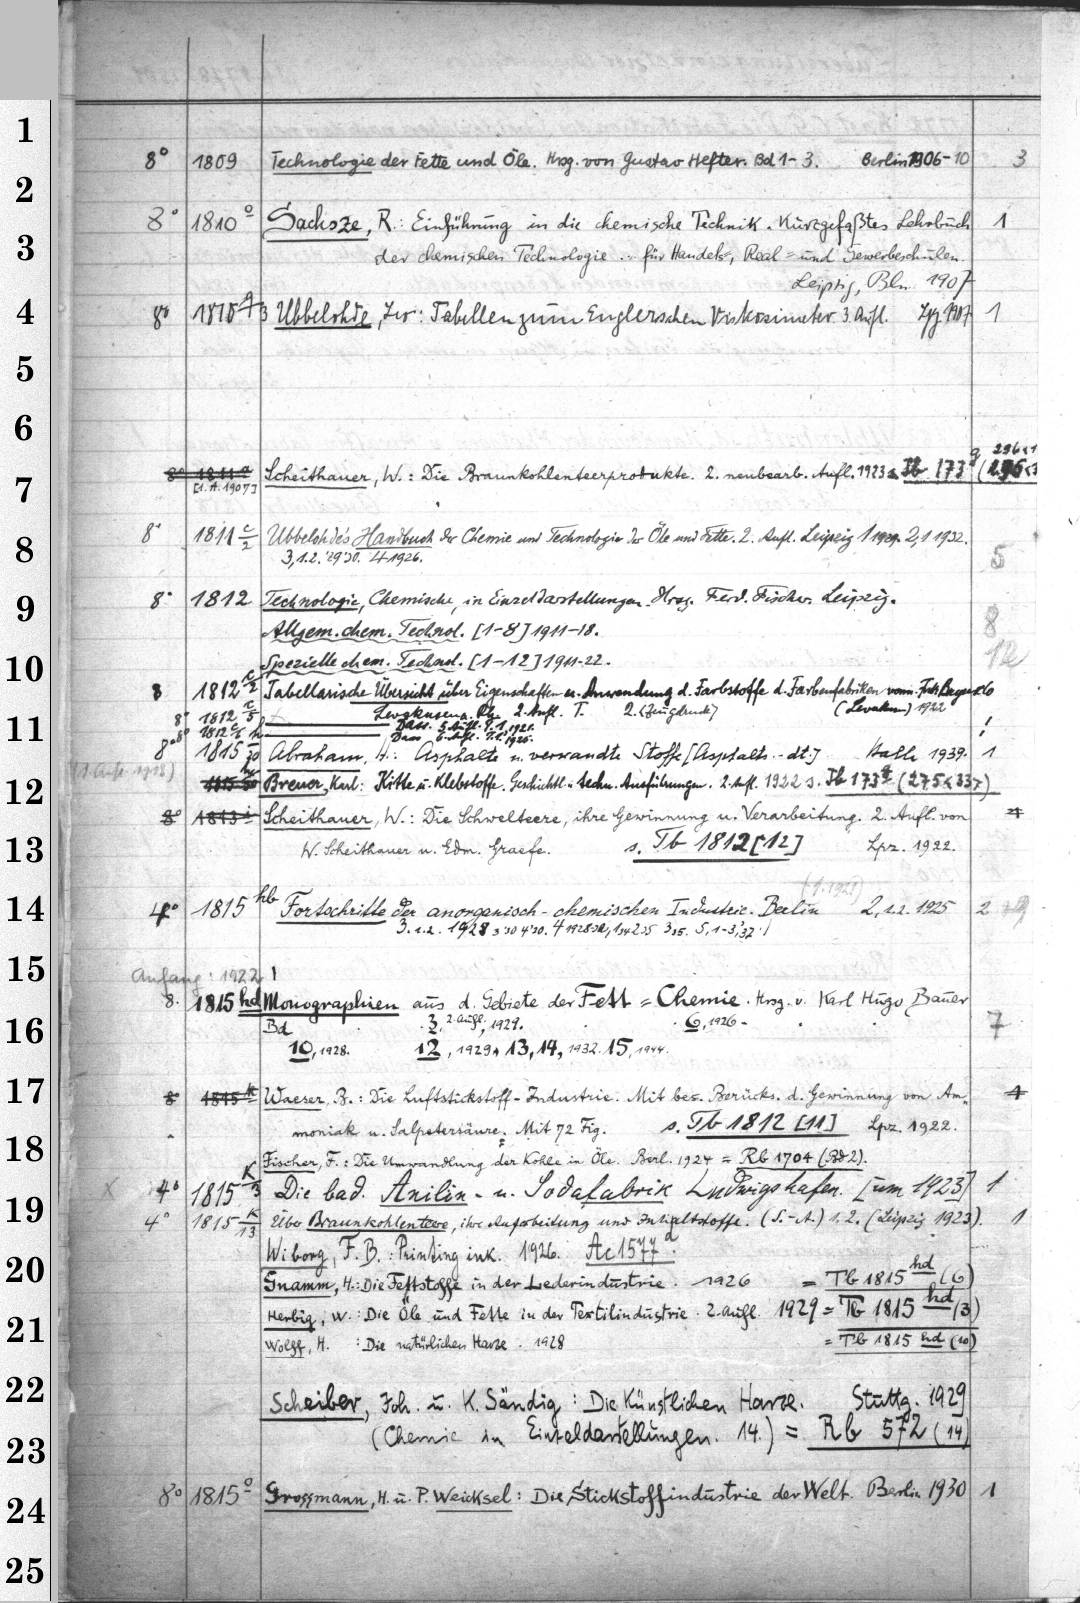 1
8° 1809 Technologie der Fette und Öle. Hrsg. von Gustav Hefter. Bd 1-3. Berlin 1906-10 3
2
8° 1810 o Sachsze, R.: Einführung in die chemische Technik. Kurzgefaßtes Lehrbuch 1
3
der chemischen Technologie .. für Handels-, Real- und Gewerbeschulen.
Leipzig, Bln. 1907
4
8° Ubbelohde, Leo: Tabellen zum Englerschen Viskosimeter 3. Aufl. Lpg 1907 1
5
6
8° 1811 a Scheithauer, W.: Die Braunkohlenteerprodukte. 2. neubearb. Aufl. 1923 s. Tb 173 q
[1. A. 1907]
7
8° 1811 c/2 Ubbelohde's Handbuch der Chemie und Technologie der Öle und Fette. 2. Aufl. Leipzig 1 1929. 2,1 1932.
8
3,1.2. '29'30. 4 1926. 5
9
8° 1812 Technologie, Chemische, in Einzeldarstellungen. Hrsg. Ferd. Fischer. Leipzig.
Allgem. chem. Technol. [1-8] 1911-18. 8
10
Spezielle chem. Technol. [1-12] 1911-22. 12
8 1812 c/2 Tabellarische Übersicht über Eigenschaften u. Anwendung d. Farbstoffe d. Farbenfabriken vorm. Friedr. Bayer & Co
8° 1812 c/5 Leverkusen a. Rh. 2. Aufl. T. 2. (Zeugdruck) (Leverkusen) 1922
11
8° 1812 Dass. 5. Aufl. T. 1, 1921.
Dass. 6. Aufl. T. 1, 1926.
8° 1815 Abraham, H.: Asphalte u. verwandte Stoffe [Asphalts .. dt.] Halle 1939. 1
(1. Aufl. 1913)
12
Breuer, Karl: Kitte u. Klebstoffe. Geschichtl.-techn. Ausführungen. 2. Aufl. 1922 s. Tb 173 q (275<337)
8° 1813 i Scheithauer, W.: Die Schwelteere, ihre Gewinnung u. Verarbeitung. 2. Aufl. von 1
13
W. Scheithauer u. Edm. Graefe. s. Tb 1812 [12] Lpz. 1922.
(1. 1921)
14
4° 1815 hb Fortschritte der anorganisch-chemischen Industrie. Berlin 2,1.2. 1925 2
3. 1.2. 1928
15
Anfang: 1922!
8. 1815 hd Monographien aus d. Gebiete der Fett-Chemie. Hrsg. v. Karl Hugo Bauer
16
Bd 3, 2. Aufl., 1929. 6, 1926. 7
10, 1928. 12, 1929. 13, 14, 1932. 15, 1944.
17
8° 1815 k Waeser, B.: Die Luftstickstoff-Industrie. Mit bes. Berücks. d. Gewinnung von Am= 1
moniak u. Salpetersäure. Mit 72 Fig. s. Tb 1812 [11] Lpz. 1922.
18
Fischer, F.: Die Umwandlung der Kohle in Öle. Berl. 1924 = Rb 1704 (Bd 2).
X 4° 1815 k/3 Die bad. Anilin- u. Sodafabrik Ludwigshafen. [um 1923] 1
19
4° 1815 k/13 Über Braunkohlenteere, ihre Aufarbeitung und Inhaltstoffe. (S.-A.) 1. 2. (Leipzig 1923). 1
Wiborg, F. B.: Printing ink. 1926. Ac 1577 d.
20
Gnamm, H.: Die Fettstoffe in der Lederindustrie. 1926 = Tb 1815 hd (6)
Herbig, W.: Die Öle und Fette in der Textilindustrie. 2. Aufl. 1929 = Tb 1815 hd (3)
21
Wolff, H.: Die natürlichen Harze. 1928 = Tb 1815 hd (10)
22
Scheiber, Joh. u. K. Sändig: Die Künstlichen Harze. Stuttg. 1929
23
(Chemie in Einzeldarstellungen. 14.) = Rb 572 (14)
24
8° 1815 o Grossmann, H. u. P. Weicksel: Die Stickstoffindustrie der Welt. Berlin 1930 1
25